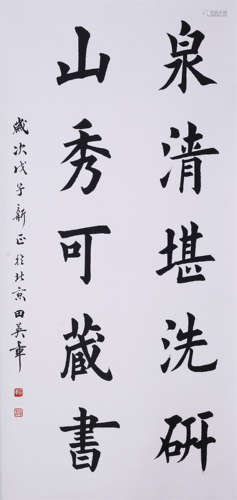 泉清堪洗研
山秀可藏書
歲次戊子新正於北京田英章